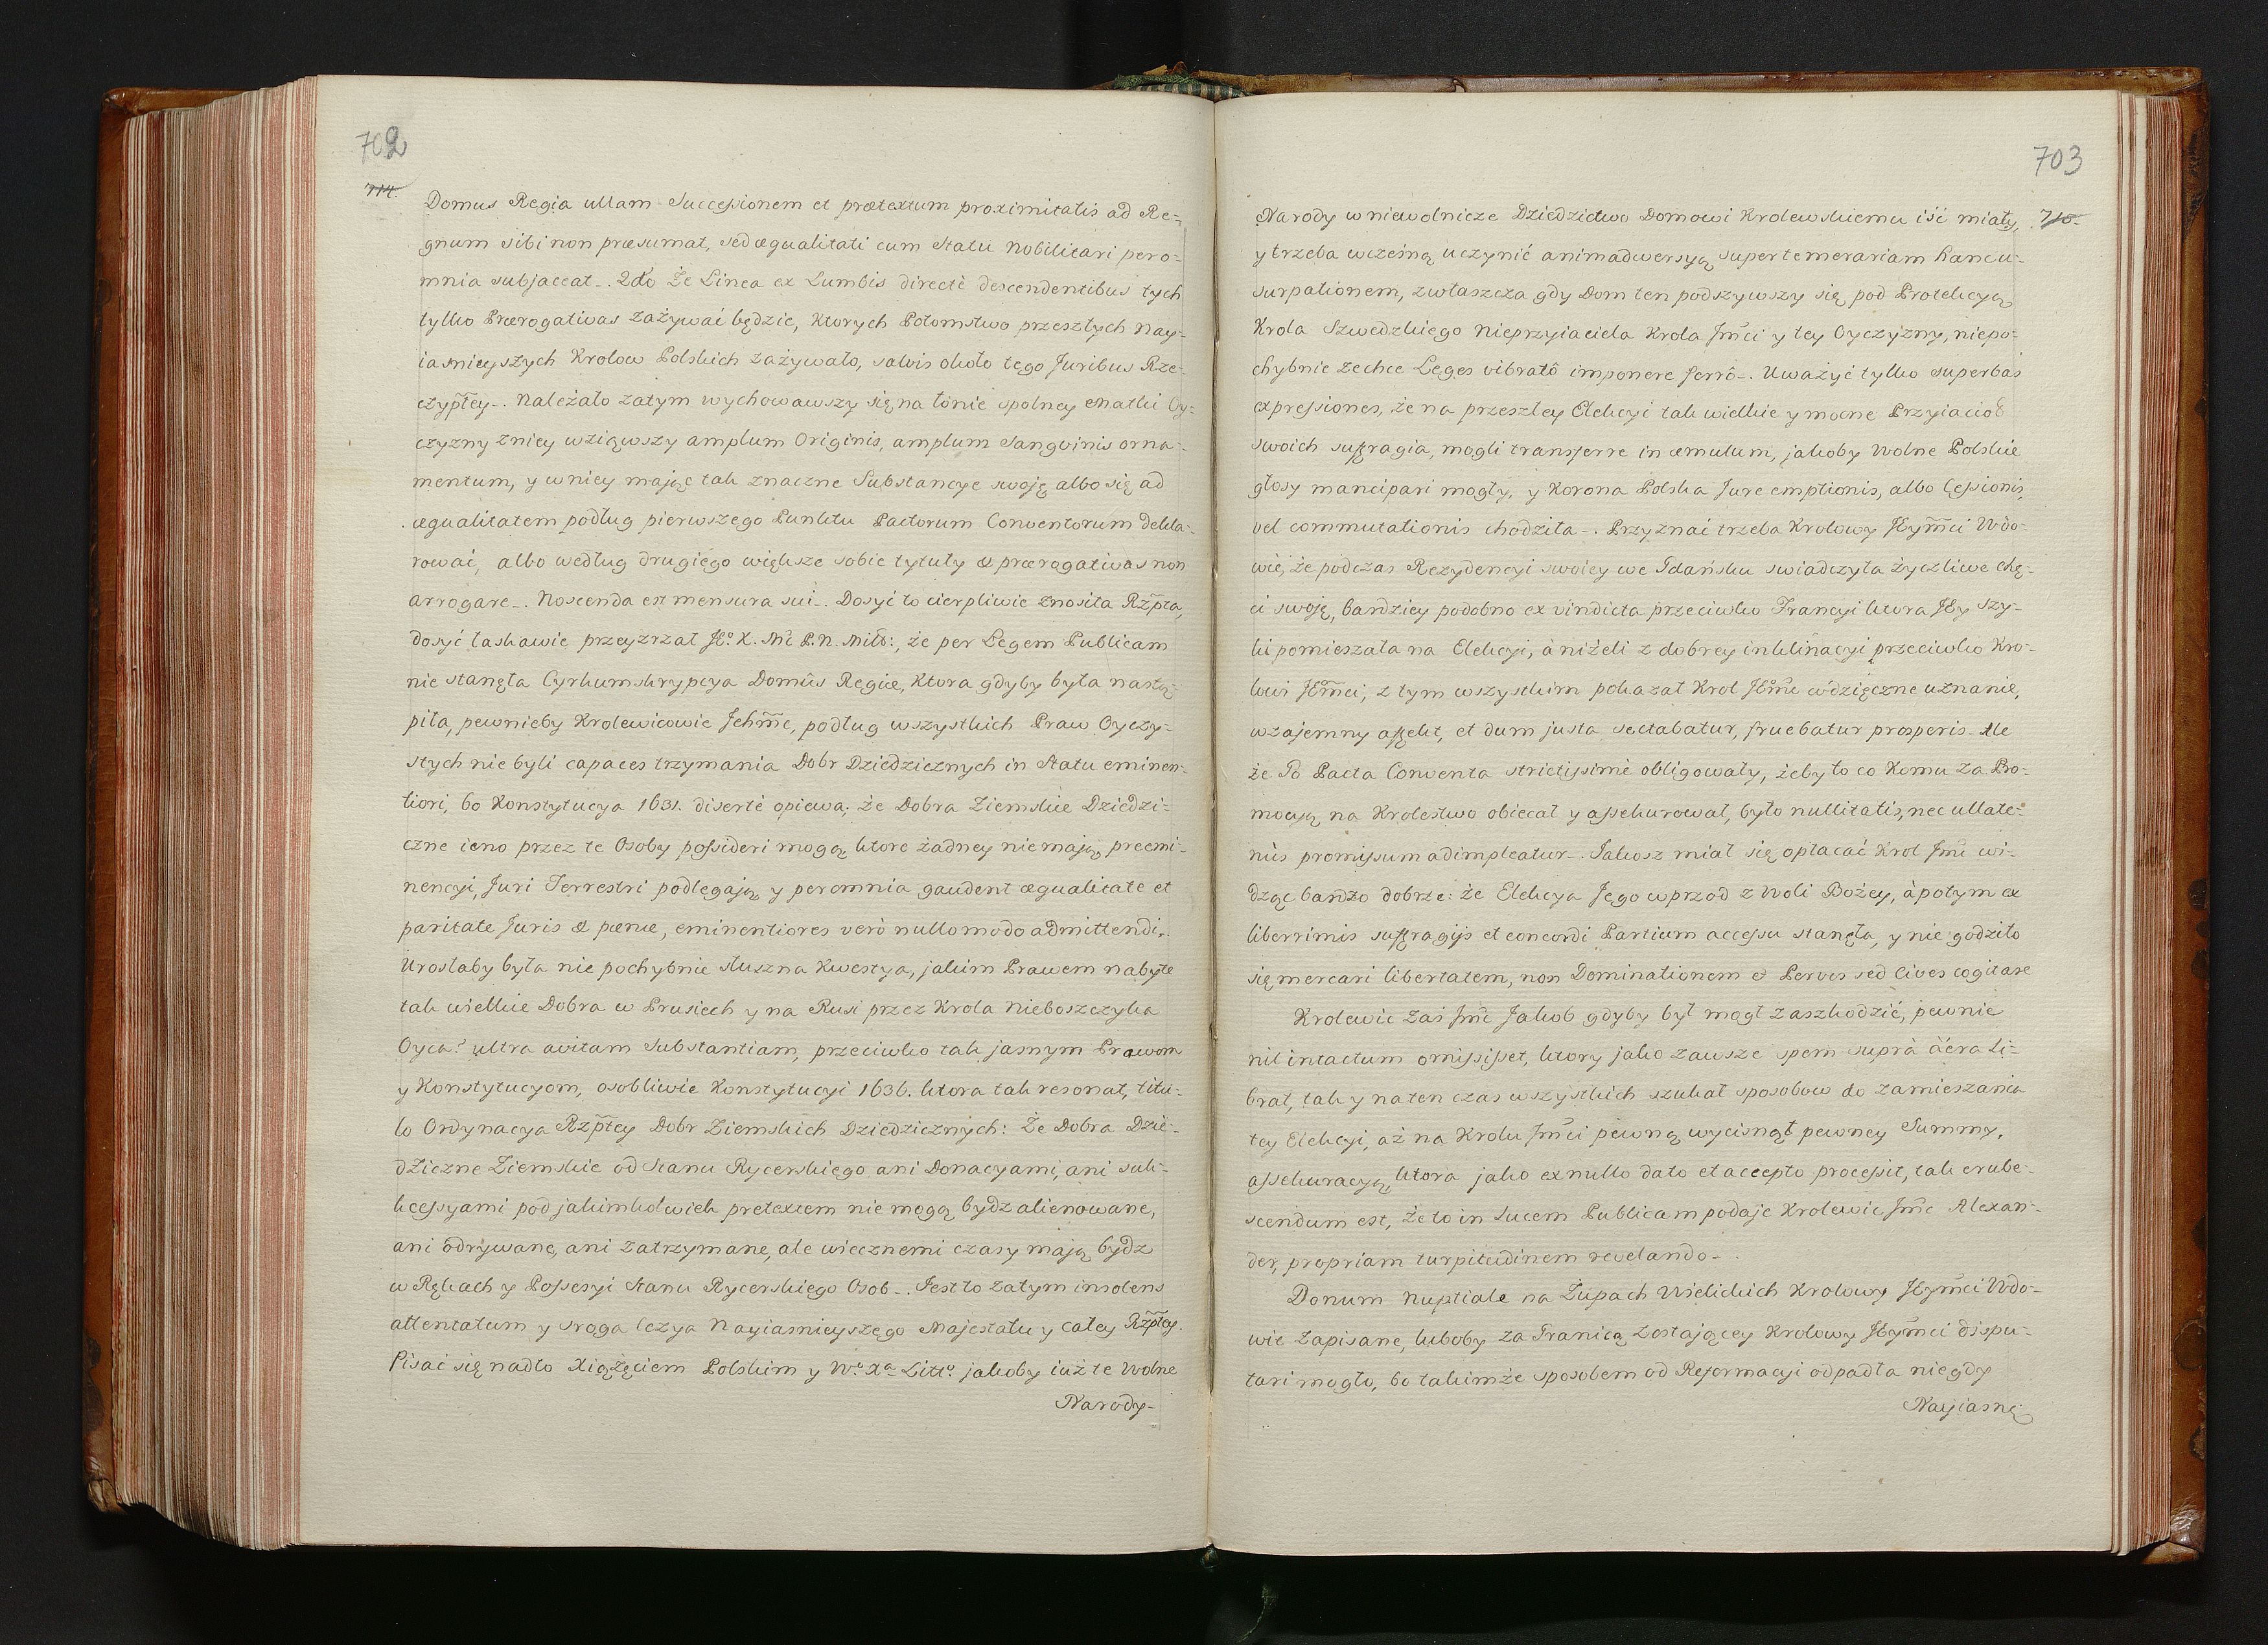 702
714.
Domus Regia ullam Successionem et prætextum proximitatis ad Re=
gnum sibi non præsumat, sed æqualitati cum Statu Nobilitari per o-
mnia subjaceat-. 2do Że Linea ex Lumbis directè descendentibus tych
tylko Prærogativas zażywać będzie, ktorych Potomstwo przeszłych Nay-
iasnieyszych Krolow Polskich zażywało, salvis około tego Juribus Rze-
czypltey-. Należało zatym wychowawszy się na łonie spolney Matki Oy-
czyzny z niey wziąwszy amplum Originis, amplum Sangvinis orna-
mentum, y w niey mając tak znaczne Substancye swoję albo się ad
æqualitatem podług pierwszego Punktu Pactorum Conventorum dekla-
rować, albo według drugięgo większe sobie tytuły & prærogativas non
arrogare-. Noscenda est mensura sui-. Dosyć to cierpliwie znosiła Rzpta,
dosyć łaskawie przeyzrzał Jº. K. Mć P. N. Miłº:, że per Legem Publicam
nie stanęła Cyrkumskrypcya Domûs Regiæ, ktora gdyby była nastą-
piła, pewnieby Krolewicowie Jchmć, podług wszystkich Praw Oyczy-
stych nie byli capaces trzymania Dobr Dziedzicznych in Statu eminen-
tiori, bo Konstytucya 1631. disertè opiewa; że Dobra Ziemskie Dziedzi-
czne ieno przez te Osoby possideri mogą ktore żadney nie mają preemi-
nencyi, Juri Terrestri podlegają y per omnia gaudent æqualitate et
paritate Juris & pœnæ, eminentiores verò nullo modo admittendi.
Urosłaby była nie pochybnie słuszna Kwestya, jakim Prawem nabyte
tak wielkie Dobra w Prusiech y na Rusi przez Krola Nieboszczyka
Oyca? ultra avitam Substantiam, przeciwko tak jasnym Prawom
y Konstytucyom, osobliwie Konstytucyi 1636. ktora tak resonat, titu-
lo Ordynacya Rzptey Dobr Ziemskich Dziedzicznych: Że Dobra Dzie-
dziczne Ziemskie od Stanu Rycerskiego ani Donacyami, ani suk-
kcessyami pod jakimkolwiek pretextem nie mogą bydz alienowane,
ani odrywane, ani zatrzymane, ale wiecznemi czasy mają bydz
w Rękach y Possesyi Stanu Rycerskiego Osob-. Jest to zatym insolens
attentatum y sroga lezya Nayiasnieyszego Majestatu y całey Rzptey.
Pisać się nadto Xiążęciem Polskim y Wº. Xª. Littº. jakoby iuż te Wolne
Narody-
703
715.
Narody w niewolnicze Dziedzictwo Domowi Krolewskiemu iść miały,
y trzeba wcześną uczynić animadwersyą super temerariam hanc u-
surpationem, zwłaszcza gdy Dom ten podszywszy się pod Protekcyą
Krola Szwedzkiego Nieprzyiaciela Krola Jmci y tey Oyczyzny, niepo-
chybnie zechce Leges vibratô imponere ferrô-. Uważyć tylko superbas
expressiones, że na przeszłey Elekcyi tak wielkie y mocne Przyiacioł
swoich suffragia, mogli transferre in æmulum, jakoby Wolne Polskie
głosy mancipari mogły, y Korona Polska Jure emptionis, albo Cessionis,
vel commutationis chodziła-. Przyznać trzeba Krolowy Jeymci Wdo-
wie, że podczas Rezydencyi swoiey we Gdańsku swiadczyła życzliwe chę-
ci swoję, bardziey podobno ex vindicta przeciwko Francyi ktora Jey szy-
ki pomieszała na Elekcyi, à niżeli z dobrey inklinacyi przeciwko Kro-
lowi Jegomci, z tym wszystkim pokazał Krol Jegomć wdzięczne uznanie,
wzajemny affekt, et dum justa sectabatur, fruebatur prosperis-. Ale
że Jo Pacta Conventa strictissimè obligowały, żeby to co komu za Pro-
mocyą na Krolestwo obiecał y assekurował, było nullitatis, nec ullate-
nùs promissum adimpleatur-. Jakosz miał się opłacać Krol Jmć wi-
dząc bardzo dobrze: że Elekcya Jego wprzod z Woli Bożey, à potym ex
liberrimis suffragijs et concordi Partium accessu stanęła, y nie godziło
się mercari libertatem, non Dominationem & Servos sed Cives cogitare
Krolewic zaś Jmć Jakob gdyby był mogł zaszkodzić, pewnie
nil intactum omisisset, ktory jako zawsze spem suprà äëra li-
brat, tak y na ten czas wszystkich szukał sposobow do zamieszania
tey Elekcyi, aż na Krolu Jmci pewną wycisnął pewney Summy,
assekuracyą, ktora jako ex nullo dato et accepto processit, tak erube-
scendum est, że to in Lucem Publicam podaje Krolewic Jmć Alexan-
der, propriam turpitudinem revelando-.
Donum Nuptiale na Żupach Wielickich Krolowy Jeymci Wdo-
wie zapisane, luboby za Granicą zostającey Krolowy Jeymci dispu-
tari mogło, bo takimże sposobem od Reformacyi odpadła niegdy
Nayiasnę